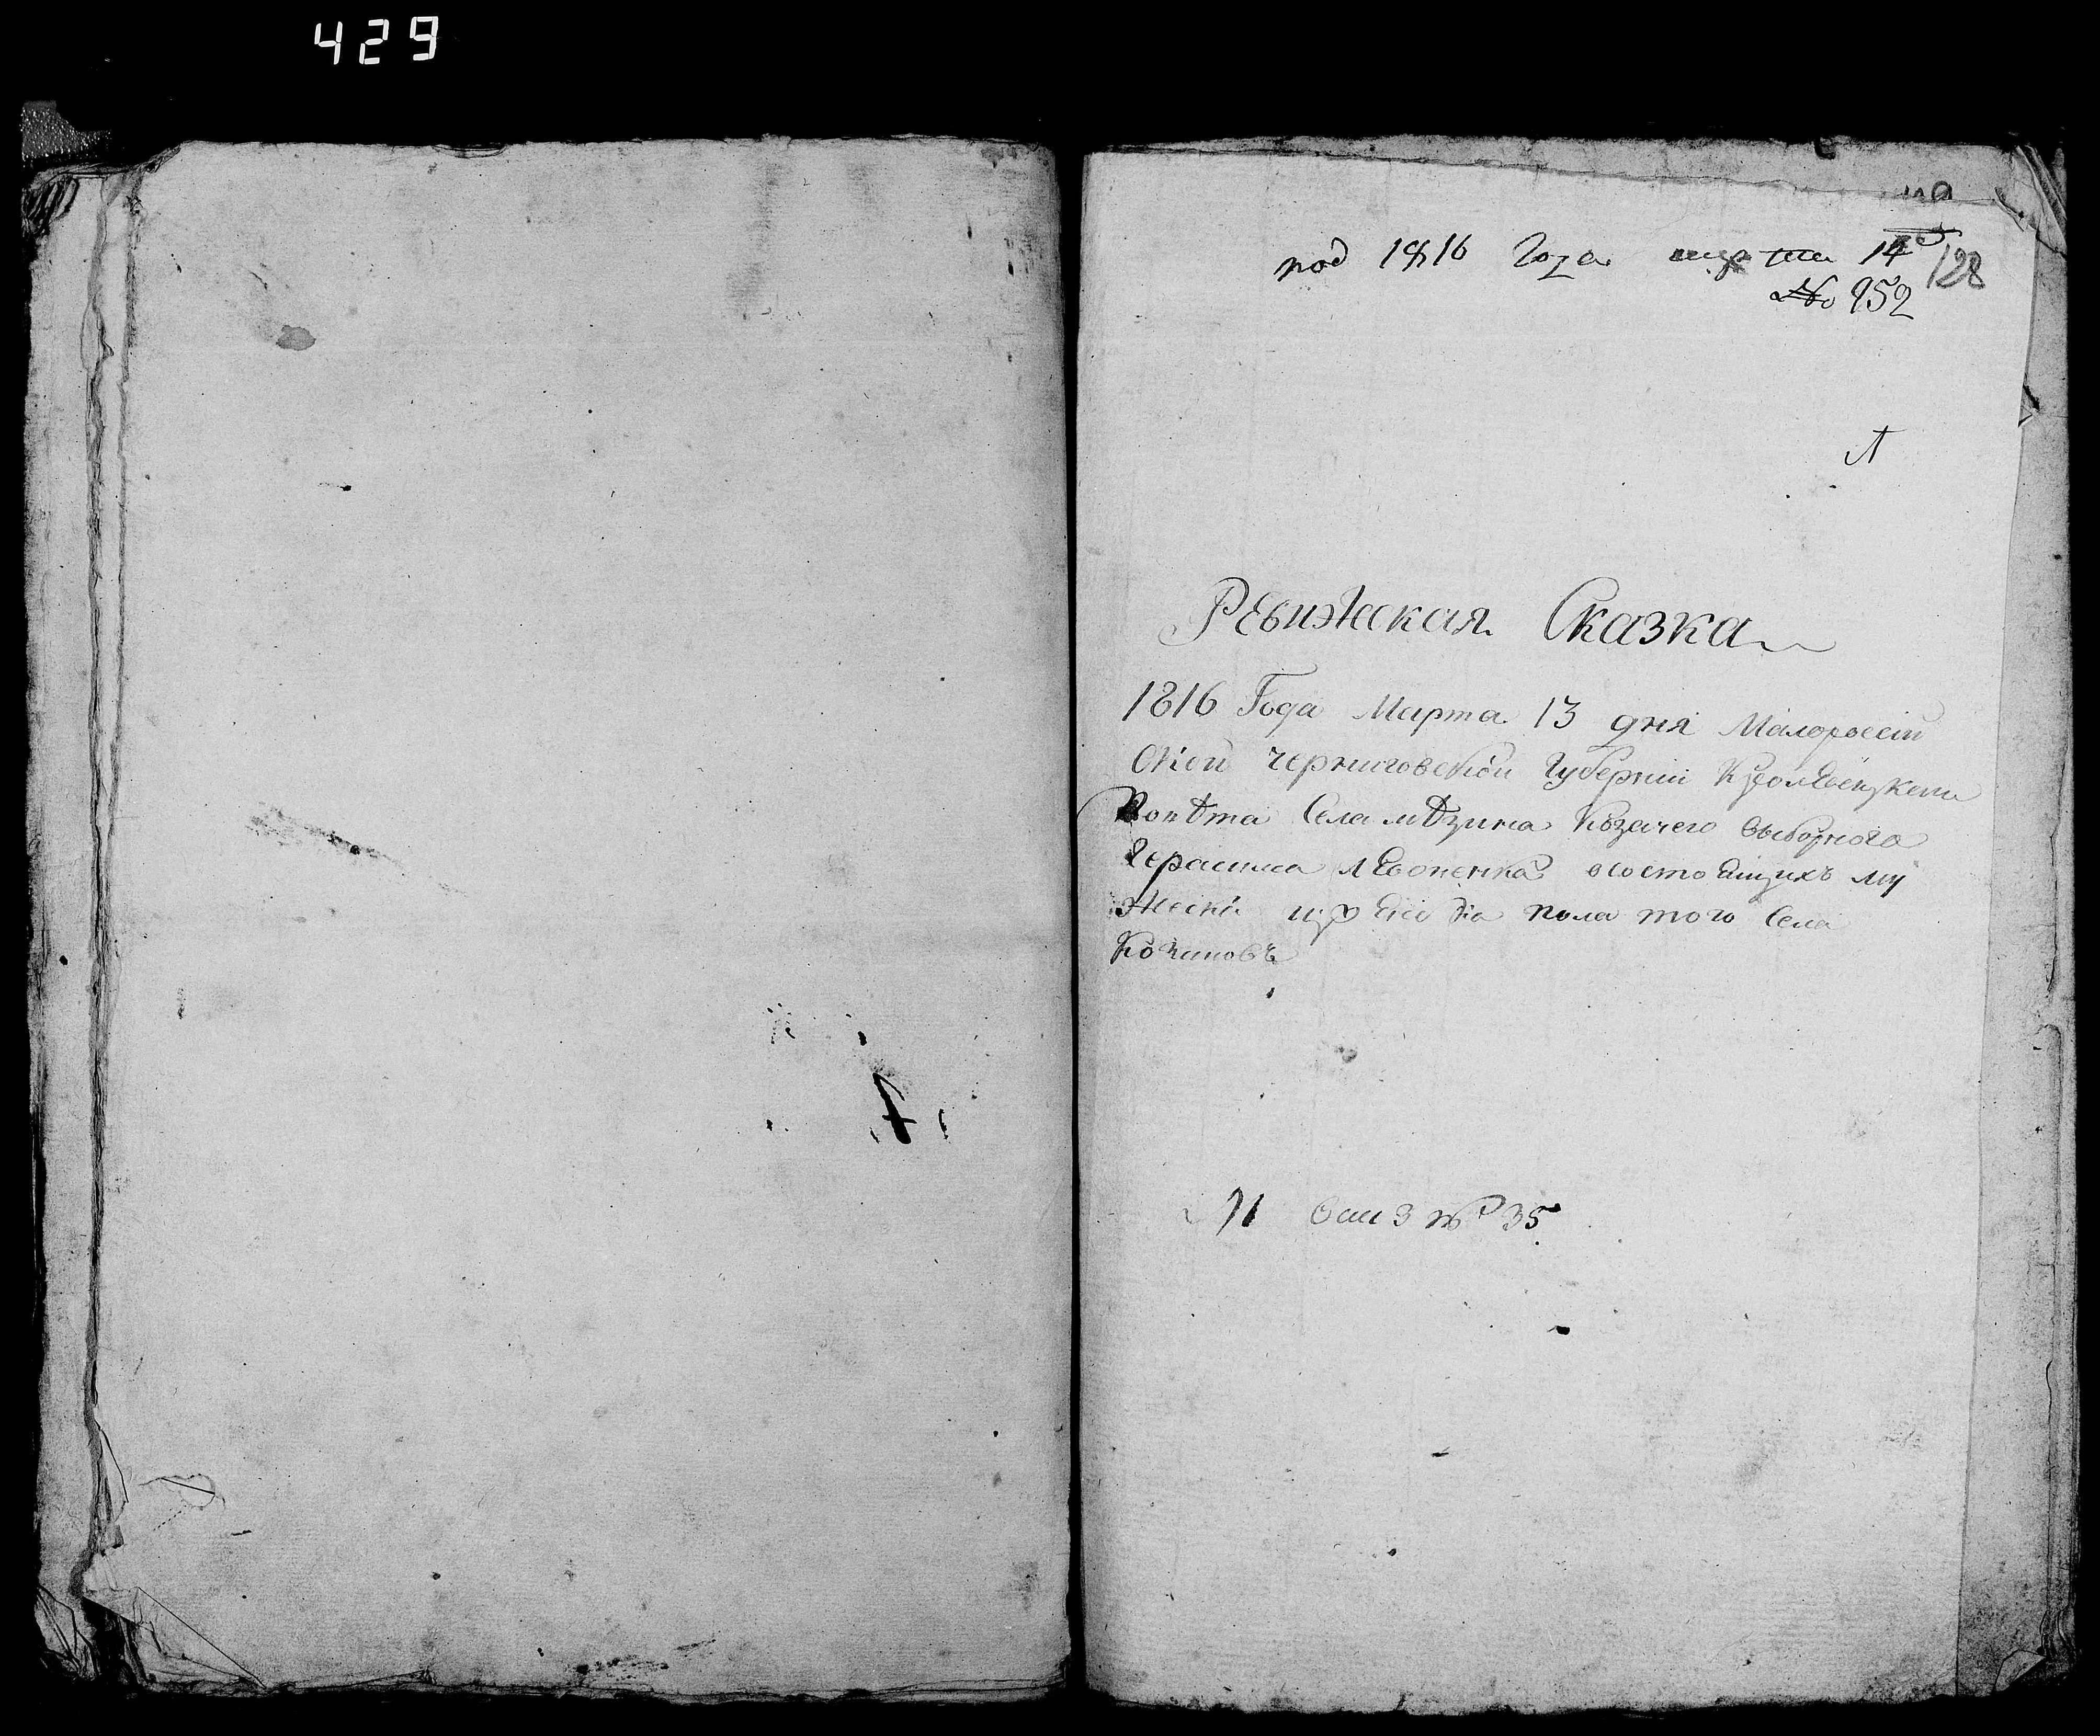 429
под 1816 Года марта 14
128
№ 952
Л
Ревижская Сказка
1816 Года Марта 13 дня Малороссій
ской Черниговской Губерніи Кролевецкаго
Повѣта Села мѣзина Козачего выборного
Герасима Левоненка о состоящихъ му
жеска и женска пола того Села
Козаковъ